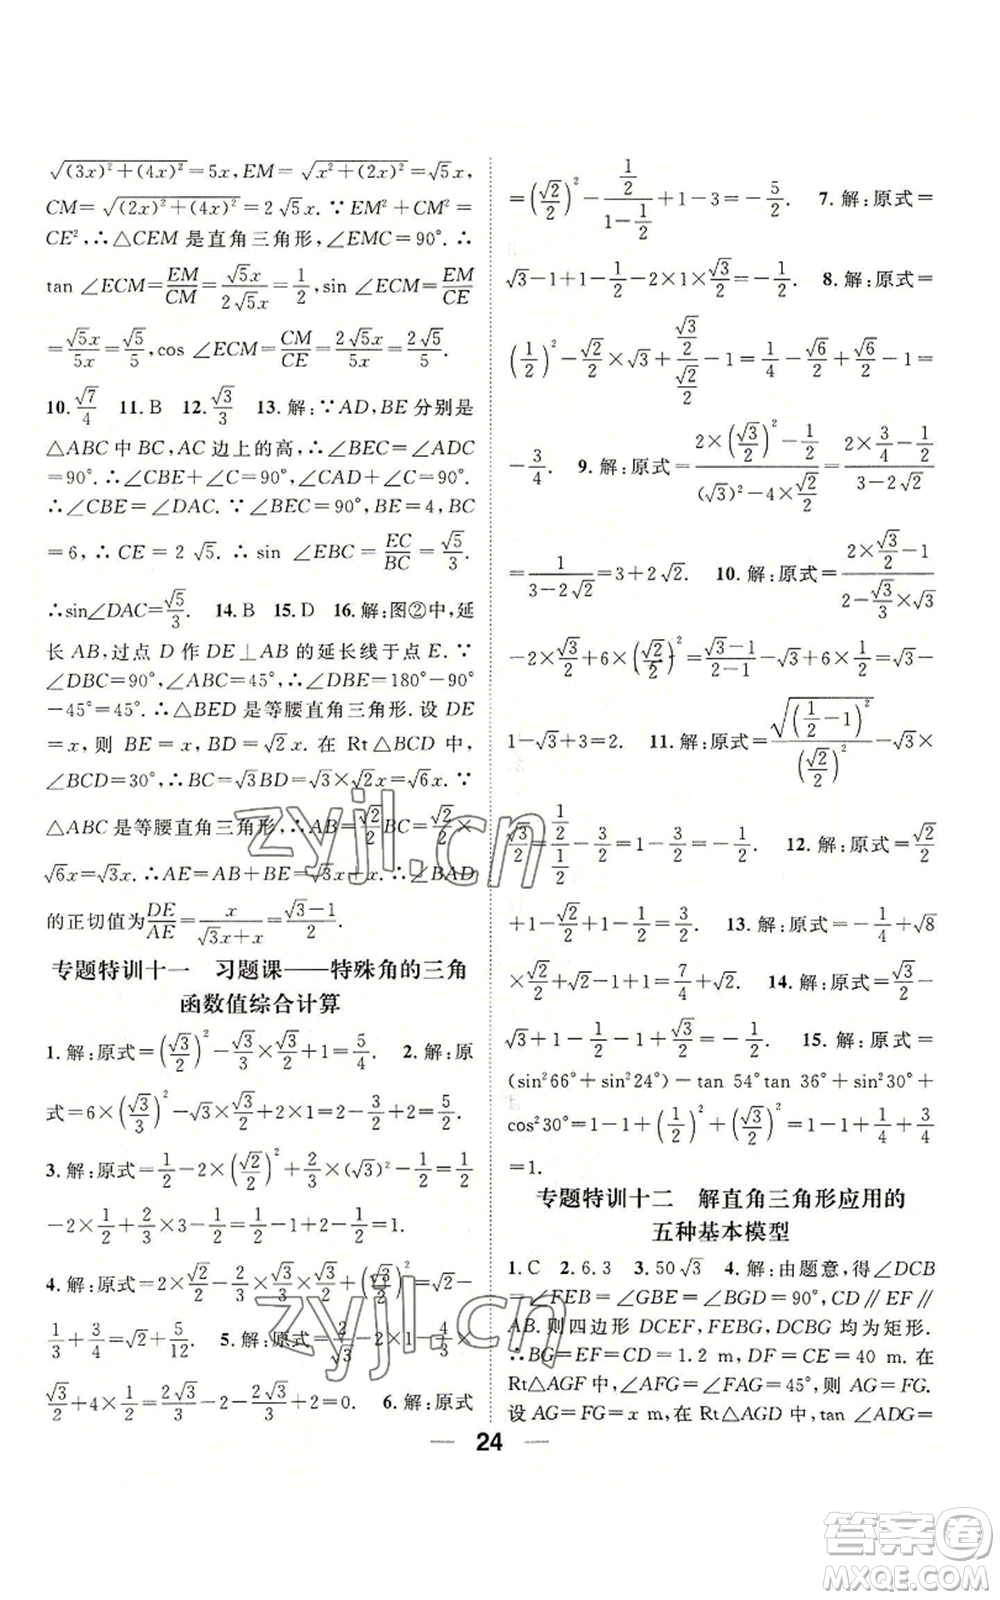 √(3x)²+(4x)²=5x,EM=√x²+(2x)²=√5x,
CM=√(2x)²+(4x)²=2√5x.∵EM²+CM²=
CE²,∴△CEM 是直角三角形,∠EMC=90°.∴
tan ∠ECM=EM/CM=√5x/2√5x=1/2,sin ∠ECM=EM/CE
=√5x/5x=√5/5,cos ∠ECM=CM/CE=2√5x/5x=2√5/5.
10.√7/4 11.B 12.√3/3 13.解:∵AD,BE 分别是
△ABC 中 BC,AC 边上的高,∴∠BEC=∠ADC
=90°.∴∠CBE+∠C=90°,∠CAD+∠C=90°.
∴∠CBE=∠DAC.∵∠BEC=90°,BE=4,BC
=6,∴CE=2√5.∴sin ∠EBC=EC/BC=√5/3.
∴sin∠DAC=√5/3. 14.B 15.D 16.解:图②中,延
长 AB,过点 D 作 DE⊥AB 的延长线于点 E.∵
∠DBC=90°,∠ABC=45°,∴∠DBE=180°-90°
-45°=45°.∴△BED 是等腰直角三角形.设 DE
=x,则 BE=x,BD=√2x.在 Rt△BCD 中,
∠BCD=30°,∴BC=√3BD=√3×√2x=√6x.∵
△ABC 是等腰直角三角形,∴AB=√2/2BC=√2/2×
√6x=√3x.∴AE=AB+BE=√3x+x.∴∠BAD
的正切值为DE/AE=x/(√3x+x)=(√3-1)/2.
专题特训十一 习题课——特殊角的三角
函数值综合计算
1.解:原式=(√3/2)²-√3/2×√3/2+1=5/4. 2.解:原
式=6×(√3/3)²-√3×√3/2+2×1=2-3/2+2=5/2.
3.解:原式=1/2-2×(√2/2)²+2/3×(√3)²-1/2=1/2
-2×1/2+2/3×3-1/2=1/2-1+2-1/2=1.
4.解:原式=2×√2/2-2√3/3×√3/3×1/2+(√3/2)²=√2-
1/3+3/4=√2+5/12. 5.解:原式=2/√3-2×1-4/3×
√3/2+4×1/2=2√3/3-2-2√3/3+2=0. 6.解:原式
=(√2/2)²-(1/2)/(1-1/2)+1-3=-5/2. 7.解:原式=
√3-1+1-1/2-2×1×√3/2=-1/2. 8.解:原式=
(1/2)²-√2/2×√3+(√3/2)/(√2/2)-1=1/4-√6/2+√6/2-1=
-3/4. 9.解:原式=(2×(√3/2)²-1/2)/((√3)²-4×√2/2)=(2×3/4-1/2)/(3-2√2)
=1/(3-2√2)=3+2√2. 10.解:原式=(2×√3/2-1)/(2-√3/3×√3)
-2×√3/2+6×(√2/2)²=(√3-1)/(2-1)-√3+6×1/2=√3-
1-√3+3=2. 11.解:原式=√(1/2-1)²/(√2/2)²-√3×
√3/2=(1/2)/(1/2)-3/2=1-3/2=-1/2. 12.解:原式=√2/2
+1-√2/2+1-1/2=3/2. 13.解:原式=-1/4+√8
√3+1-√3+√2/2×(-√2/2)=-1/2. 15.解:原式=
(sin²66°+sin²24°)-tan 54°tan 36°+sin²30°+
cos²30°=1-1+(1/2)²+(√3/2)²=1-1+1/4+3/4
=1.
专题特训十二 解直角三角形应用的
五种基本模型
1.C 2.6.3 3.50√3 4.解:由题意,得∠DCB
=∠FEB=∠GBE=∠BGD=90°,CD∥EF∥
AB.则四边形 DCEF,FEBG,DCBG 均为矩形.
∴BG=EF=CD=1.2 m,DF=CE=40 m.在
Rt△AGF 中,∠AFG=∠FAG=45°,则 AG=FG.
设 AG=FG=x m,在 Rt△AGD 中,tan ∠ADG=
24
zyjl.cn
zyjl.cn
答案卷
MXQE.COM